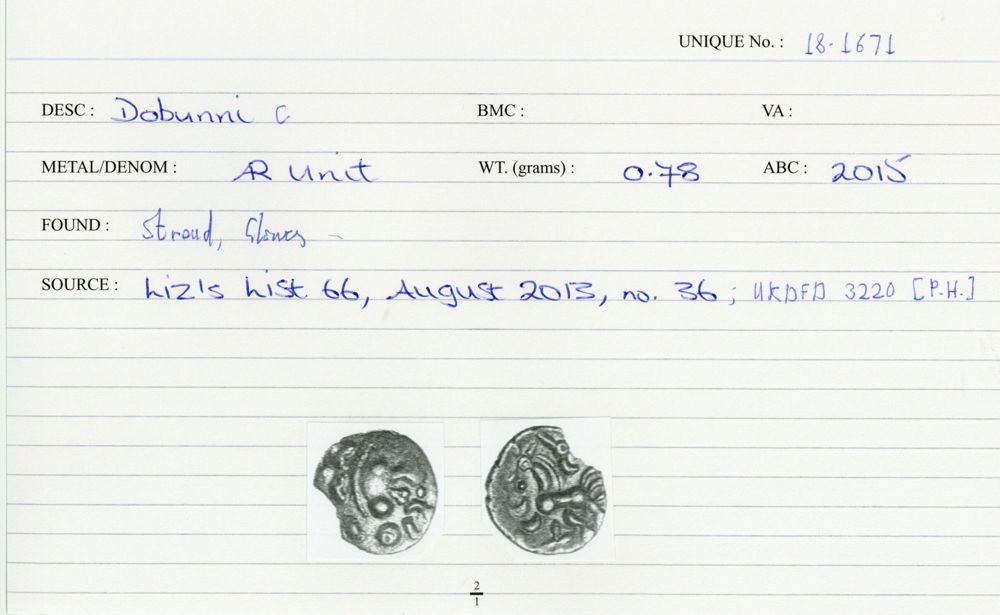 UNIQUE No. : 18-1671
DESC : Dobunni C BMC : VA :
METAL/DENOM : AR Unit WT. (grams) : 0.78 ABC : 2015
FOUND : Stroud, Gloucs -
SOURCE : Liz's List 66, August 2013, no. 36 ; UKDFD 3220 [P.H.]
2
1